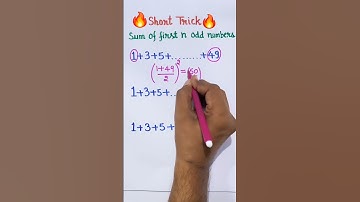 🔥Short Trick🔥
Sum of first n odd numbers
1+3+5+..........+49
(1+49/2)²=(50
1+3+5+..
1+3+5+